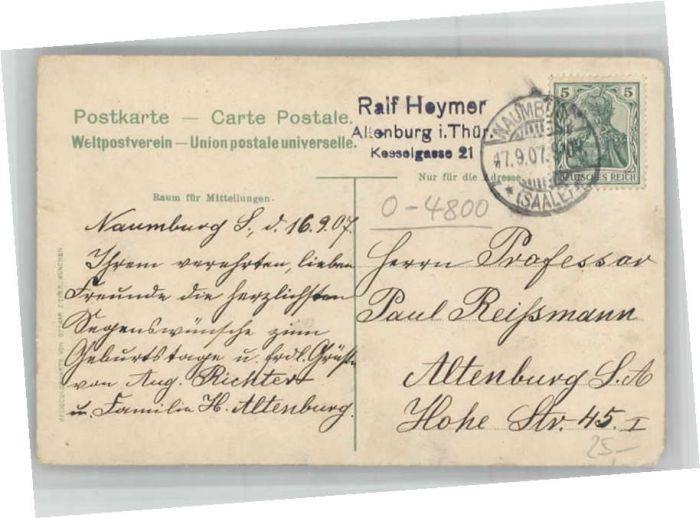 Postkarte — Carte Postale.
Weltpostverein – Union postale universelle.
Ralf Heymer
Altenburg i. Thür.
Kesselgasse 21
5 5
DEUTSCHES REICH
NAUMBURG
17.9.07.
(SAALE)
Nur für die Adresse
0-4800
Raum für Mitteilungen.
Naumburg S., d. 16.9.07.
Ihrem verehrten, lieben
Freunde die herzlichsten
Segenswünsche zum
Geburtstage u. frdl. Grüße
von Aug. Richter
u. Familie H. Altenburg.
Herrn Professor
Paul Reißmann
Altenburg S. A
Hohe Str. 45. I
25,-